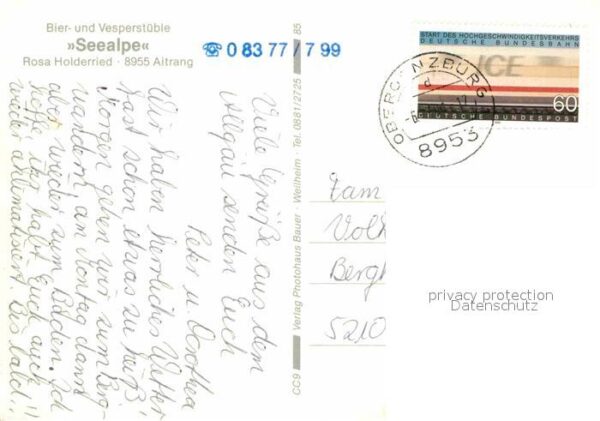 Bier- und Vesperstüble
»Seealpe«
Rosa Holderried · 8955 Aitrang
☎ 0 83 77 / 7 99
Viele Grüße aus dem
Allgäu senden Euch
Peter u. Dorothea
Wir haben herrliches Wetter
fast schon etwas zu heiß!
Morgen gehen wir zum Berg-
wandern, am Montag dann
aber wieder zum Baden. Ich
hoffe, Ihr habt Euch auch
wieder akklimatisiert. Bis bald!!
CC9
Verlag Photohaus Bauer Weilheim · Tel. 0881/2725
85
START DES HOCHGESCHWINDIGKEITSVERKEHRS
DEUTSCHE BUNDESBAHN
ICE
60
DEUTSCHE BUNDESPOST
OBERGÜNZBURG
d
8953
Fam
Volk
Bergh
5210
privacy protection
Datenschutz